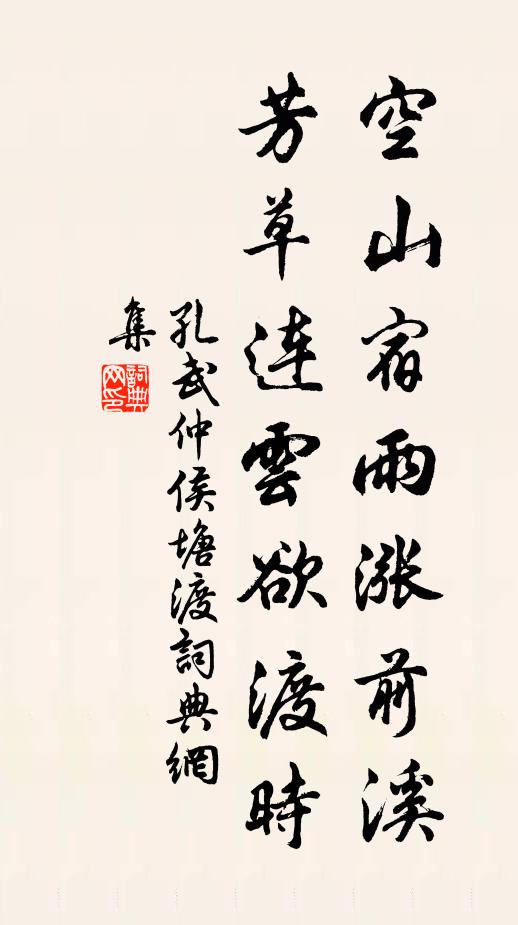 空山宿雨漲前溪
芳草連雲欲渡時
孔武仲侯塘渡詞典網
集
詞典
网印